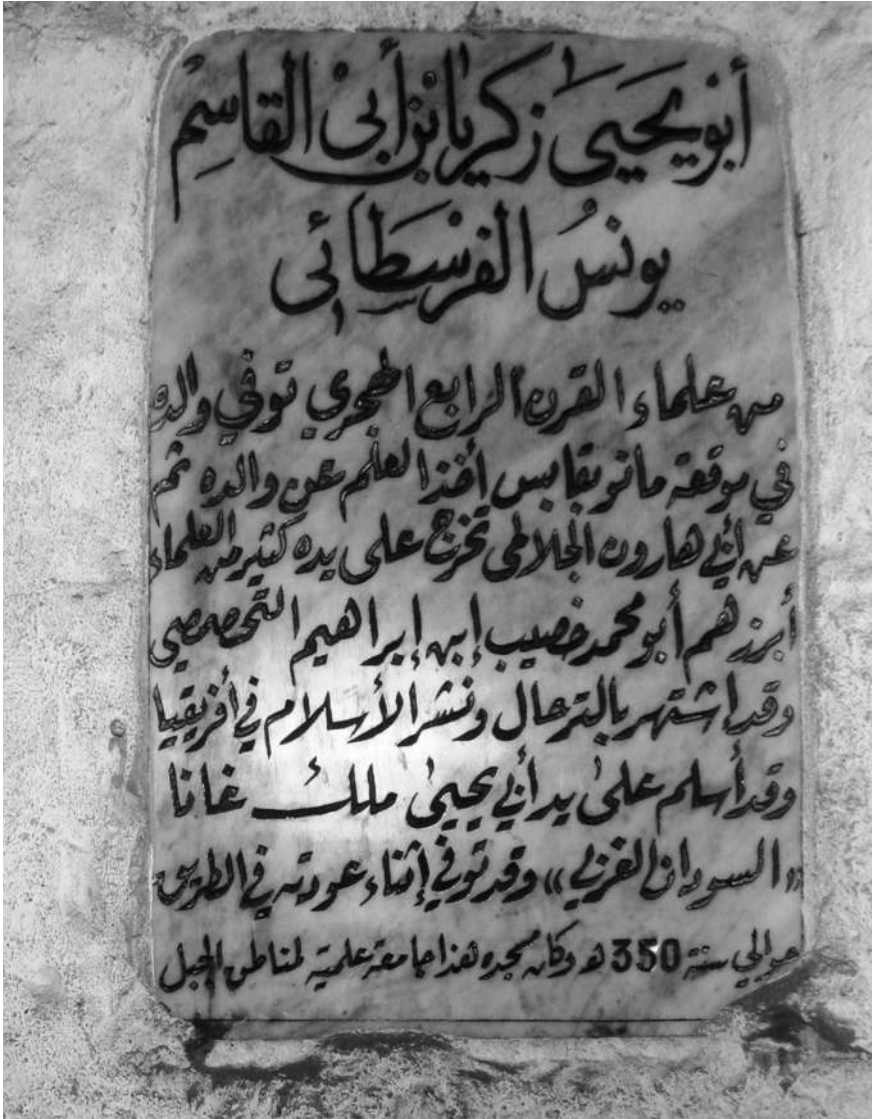 أبو يحيى زكريا بن أبي القاسم
يونس الفرسطائي
من علماء القرن الرابع الهجري توفي والده
في موقعة مانو بقابس أخذ العلم عن والده ثم
عن أبي هارون الجلالمي تخرج على يده كثير من العلماء
أبرزهم أبو محمد خصيب إبن إبراهيم التمصمصي
وقد اشتهر بالترحال ونشر الأسلام في أفريقيا
وقد أسلم على يد أبي يحيى ملك غانا
«السودان الغربي» وقد توفي إثناء عودته في الطريق
حوالي سنة 350 هـ وكان مسجده هذا جامعة علمية لمناطق الجبل